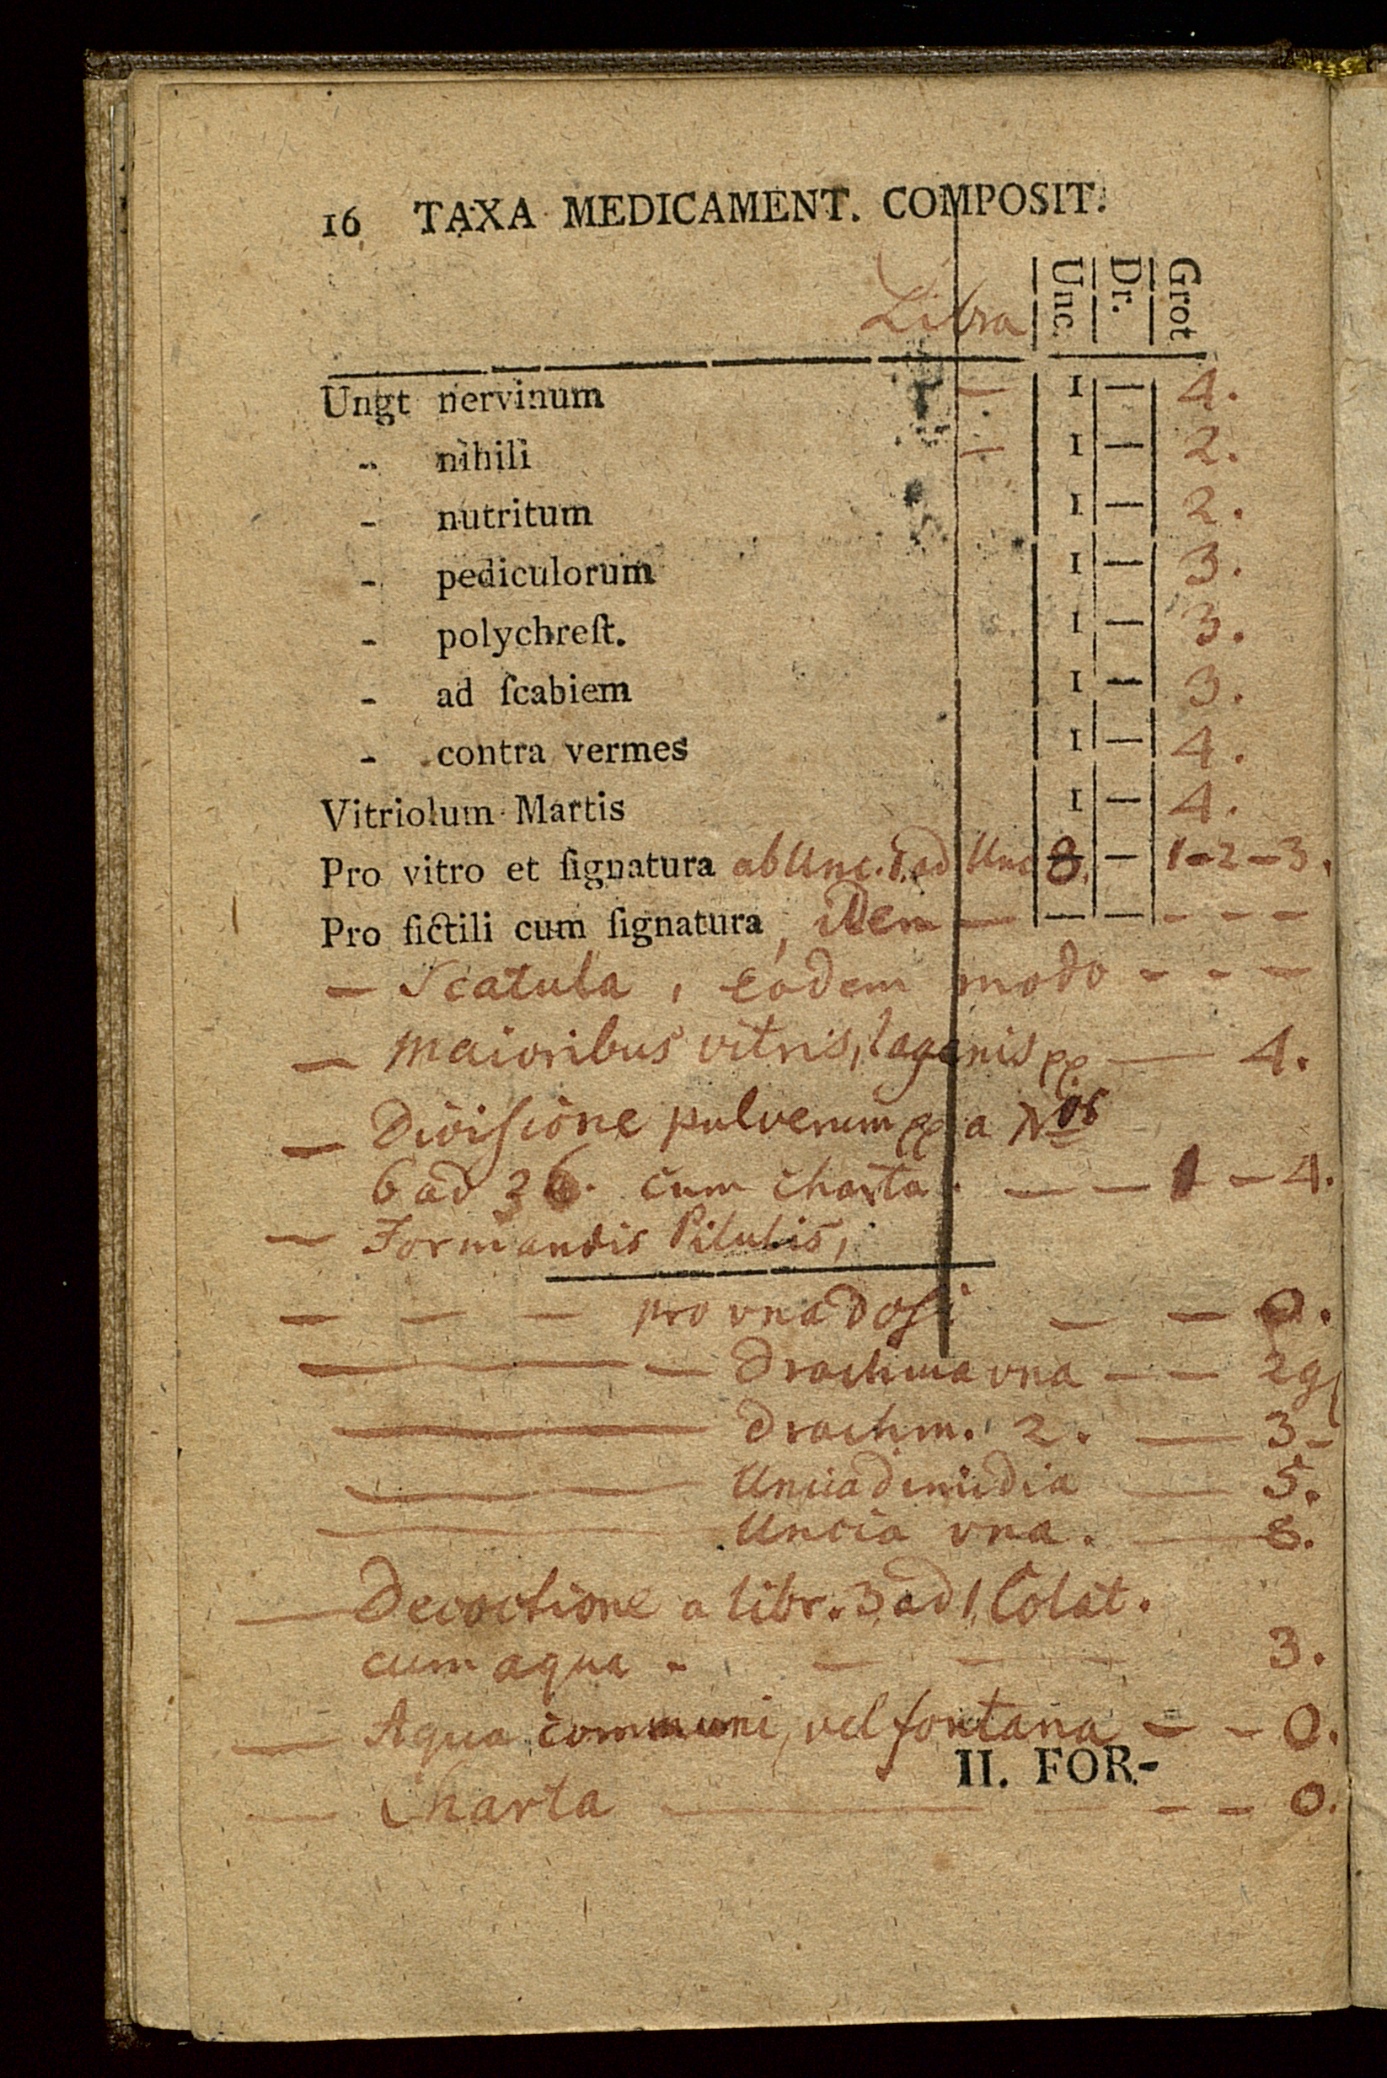 16 TAXA MEDICAMENT. COMPOSIT.
Libra Unc. Dr. Grot
Ungt nervinum — 1 — 4.
- nihili — 1 — 2.
- nutritum 1 — 2.
- pediculorum 1 — 3.
- polychreſt. 1 — 3.
- ad ſcabiem 1 — 3.
- contra vermes 1 — 4.
Vitriolum Martis 1 — 4.
Pro vitro et ſignatura ab Unc. 1. ad Unc 8. — 1-2-3.
Pro fictili cum ſignatura, Idem — — — - - -
— Scatula, eodem modo - - —
— maioribus vitris, lagenis pp — 4.
— Diviſione pulverum pp a Nos
6 ad 36. cum charta. — — 1 — 4.
— Formandis Pilulis,
— — — pro vna doſi — — 0.
— — Drachma vna — — 2
— Drachm. 2. — 3-
— Uncia dimidia — 5.
— Uncia vna. — 8.
— Decoctione a libr. 3 ad 1 Colat.
cum aqua - — — — 3.
— Aqua communi, vel fontana — - 0.
II. FOR-
— Charta — — - - 0.